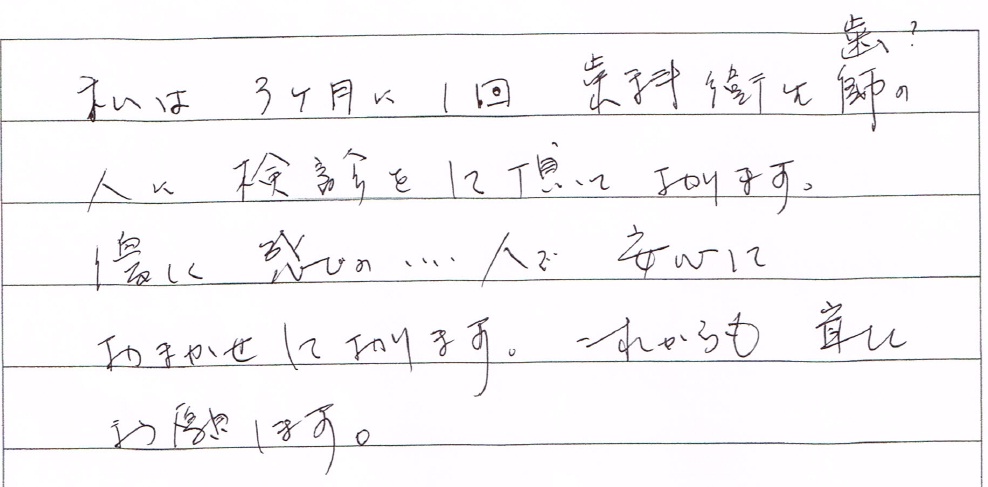 歯?
私は 3ケ月に 1回 歯科衛生師の
人に 検診をして頂いて おります。
優しく 感じの ‥‥ 人で 安心して
おまかせしております。これからも 宜しく
お願いします。